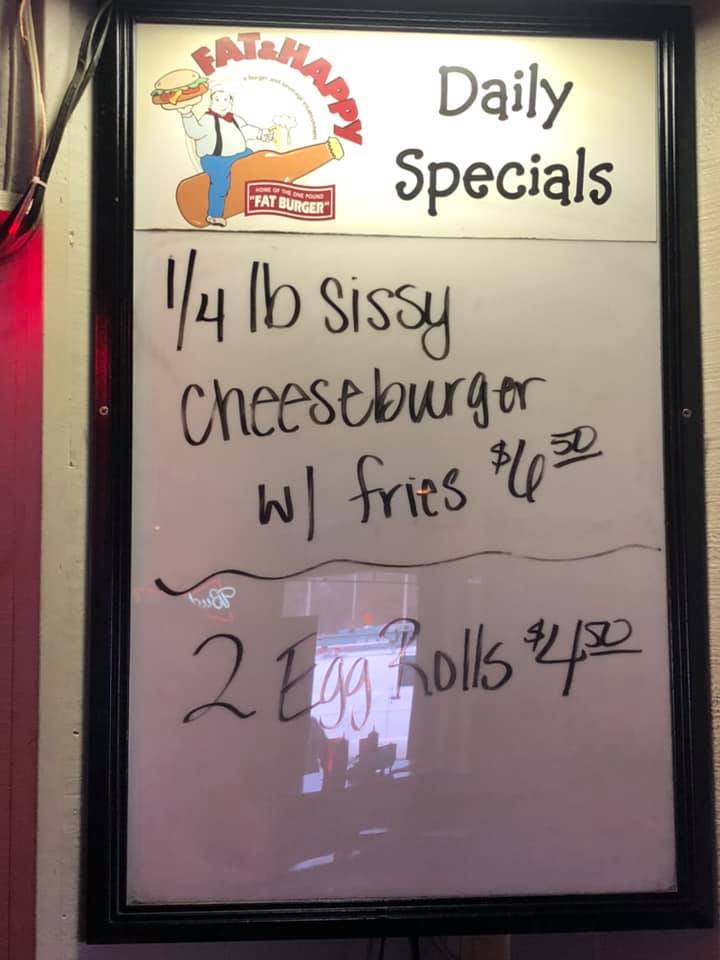 FAT & HAPPY
Daily
Specials
HOME OF THE ONE POUND
"FAT BURGER"
1/4 lb Sissy
Cheeseburger
w/ fries $6 50
Bud
2 Egg Rolls $4 50